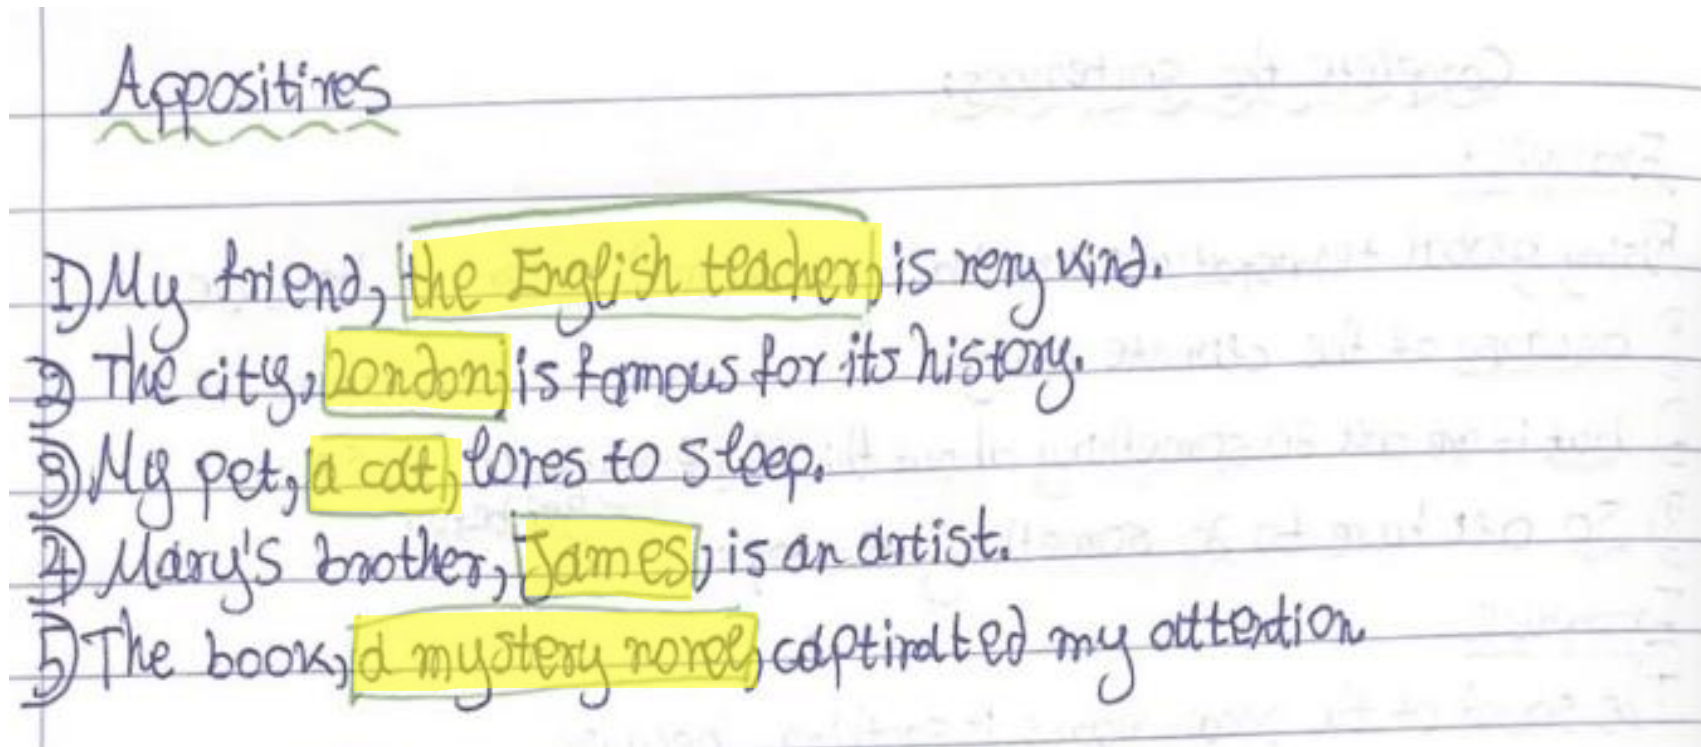 Appositives
1) My friend, the English teacher, is very kind.
2) The city, London, is famous for its history.
3) My pet, a cat, loves to sleep.
4) Mary's brother, James, is an artist.
5) The book, a mystery novel, captivated my attention